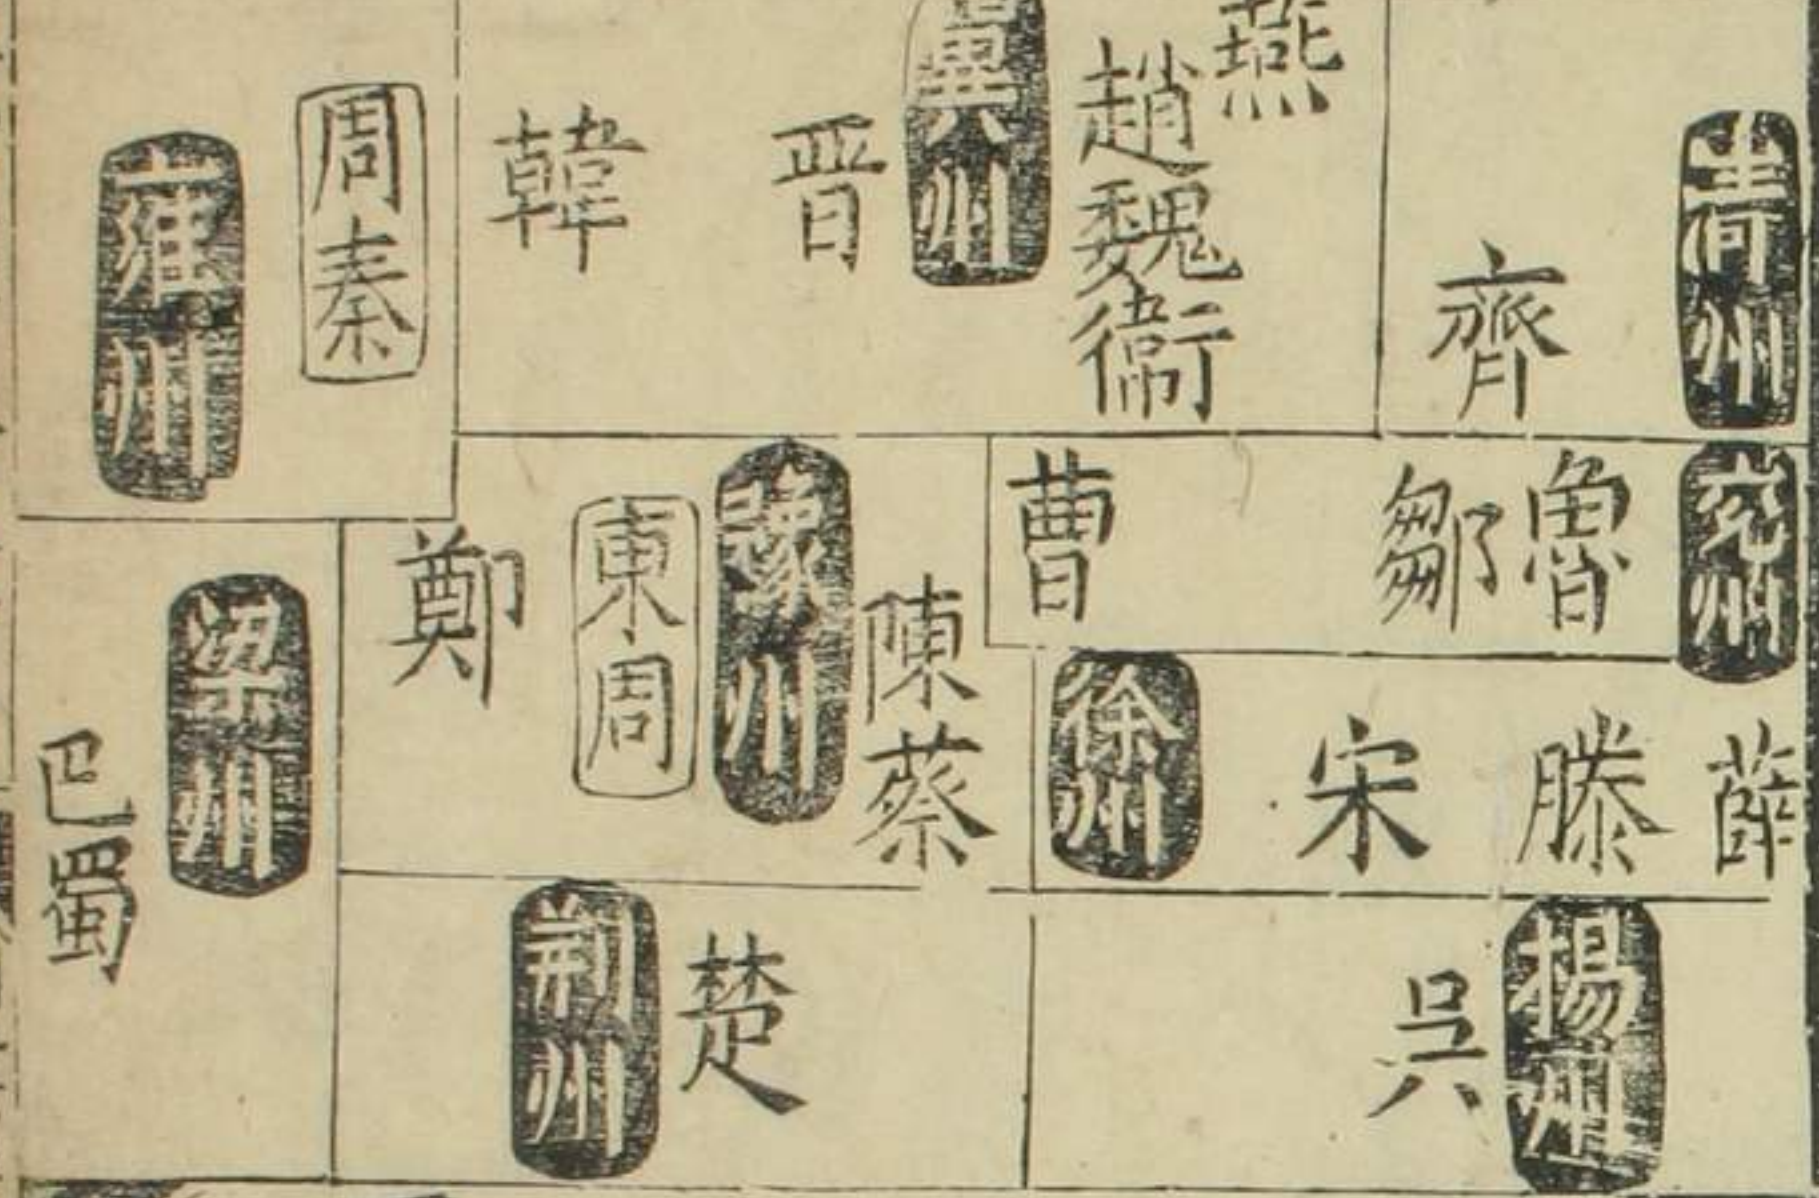 青州
齊
燕
趙魏衞
冀州
晋
韓
周秦
雍州
兖州
魯
鄒
曹
薛
滕
宋
徐州
陳蔡
豫州
東周
鄭
梁州
巴蜀
揚州
呉
楚
荆州